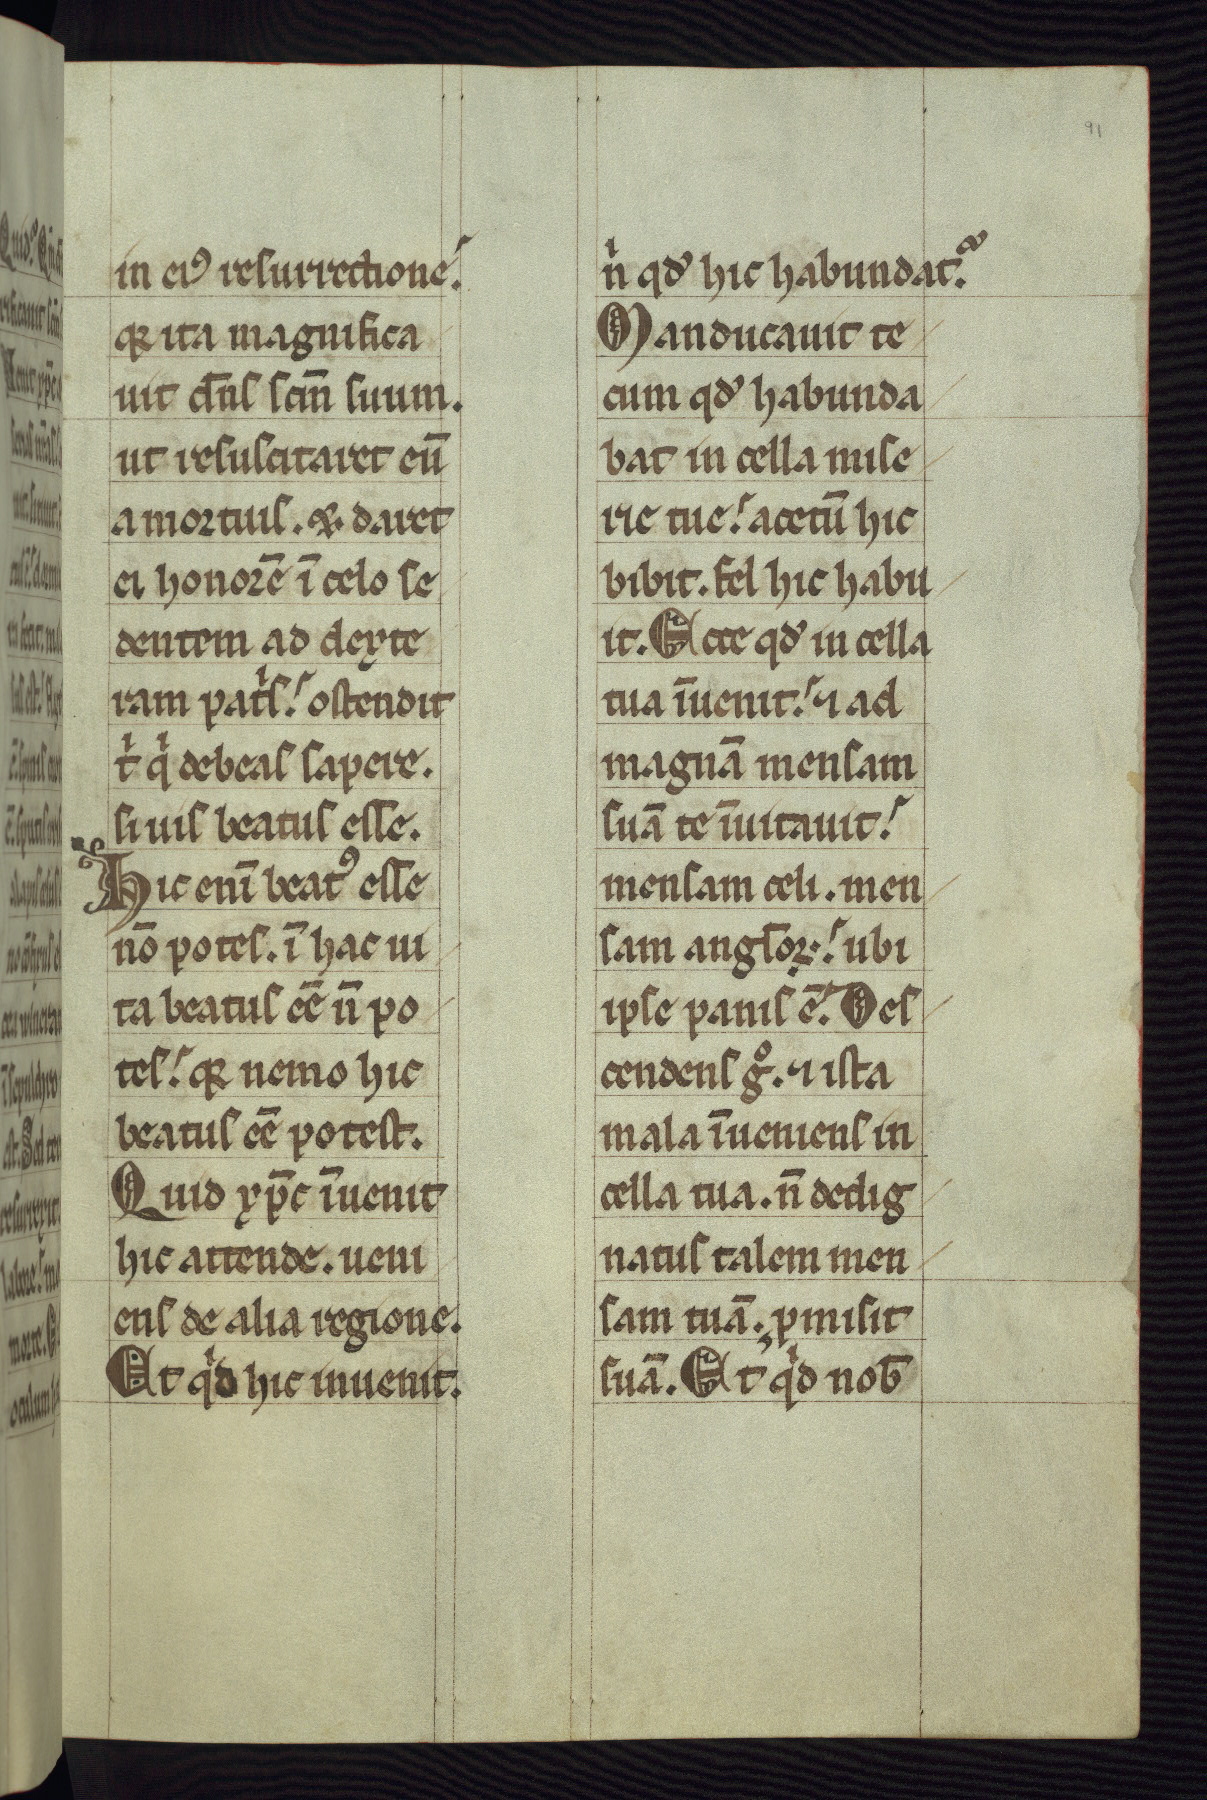 in eiꝰ resurrectione.
qꝛ ita magnifica
uit dn̄s scm̄ suum.
ut resuscitaret eū
a mortuis. & daret
ei honorē ī celo se
dentem ad dexte
ram patͥs. ostendit
tͥ qͥ debeas sapere.
si uis beatus esse.
Hic enī beatꝰ esse
nō potes. ī hac ui
ta beatus eē n̄ po
tes. qꝛ nemo hic
beatus eē potest.
Quid xp̄c īuenit
hic attende. ueni
ens de alia regione.
Et qͥd hic inuenit.
91
nͥ qd̓ hic habundat.
Manducauit te
cum qd̓ habunda
bat in cella mise
rie tue. acetū hic
bibit. fel hic habu
it. Ecce qd̓ in cella
tua īuenit. ⁊ ad
magnā mensam
suā te īuitauit.
mensam celi. men
sam angl̄oꝝ. ubi
ipse panis ē. Des
cendens gͦ. ⁊ ista
mala īueniens in
cella tua. n̄ dedig
natus talem men
sam tuā. ꝓmisit
suā. Et qͥd nob̄